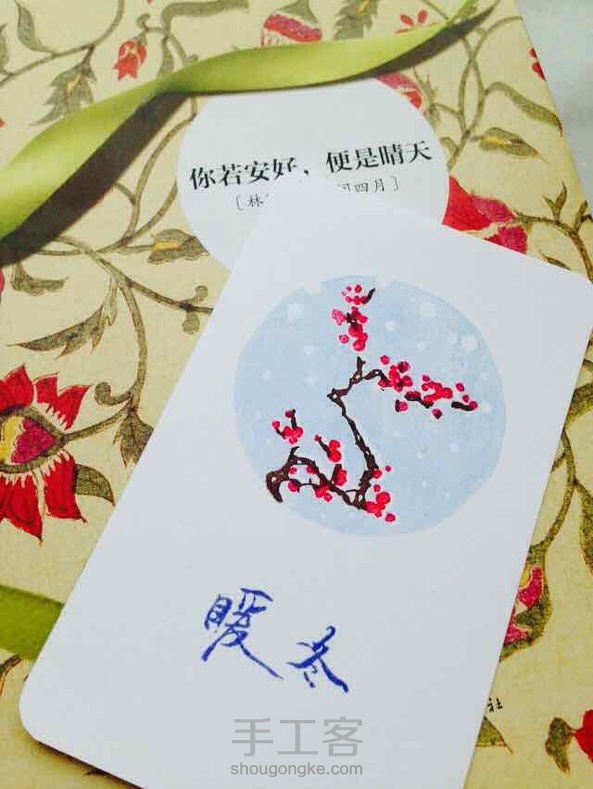 你若安好，便是晴天
［林
四月］
暖冬
社
手工客
shougongke.com